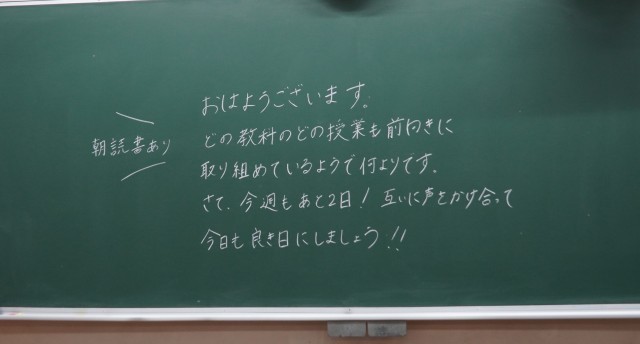 朝読書あり
おはようございます。
どの教科のどの授業も前向きに
取り組めているようで何よりです。
さて、今週もあと2日! 互いに声をかけ合って
今日も良き日にしましょう!!